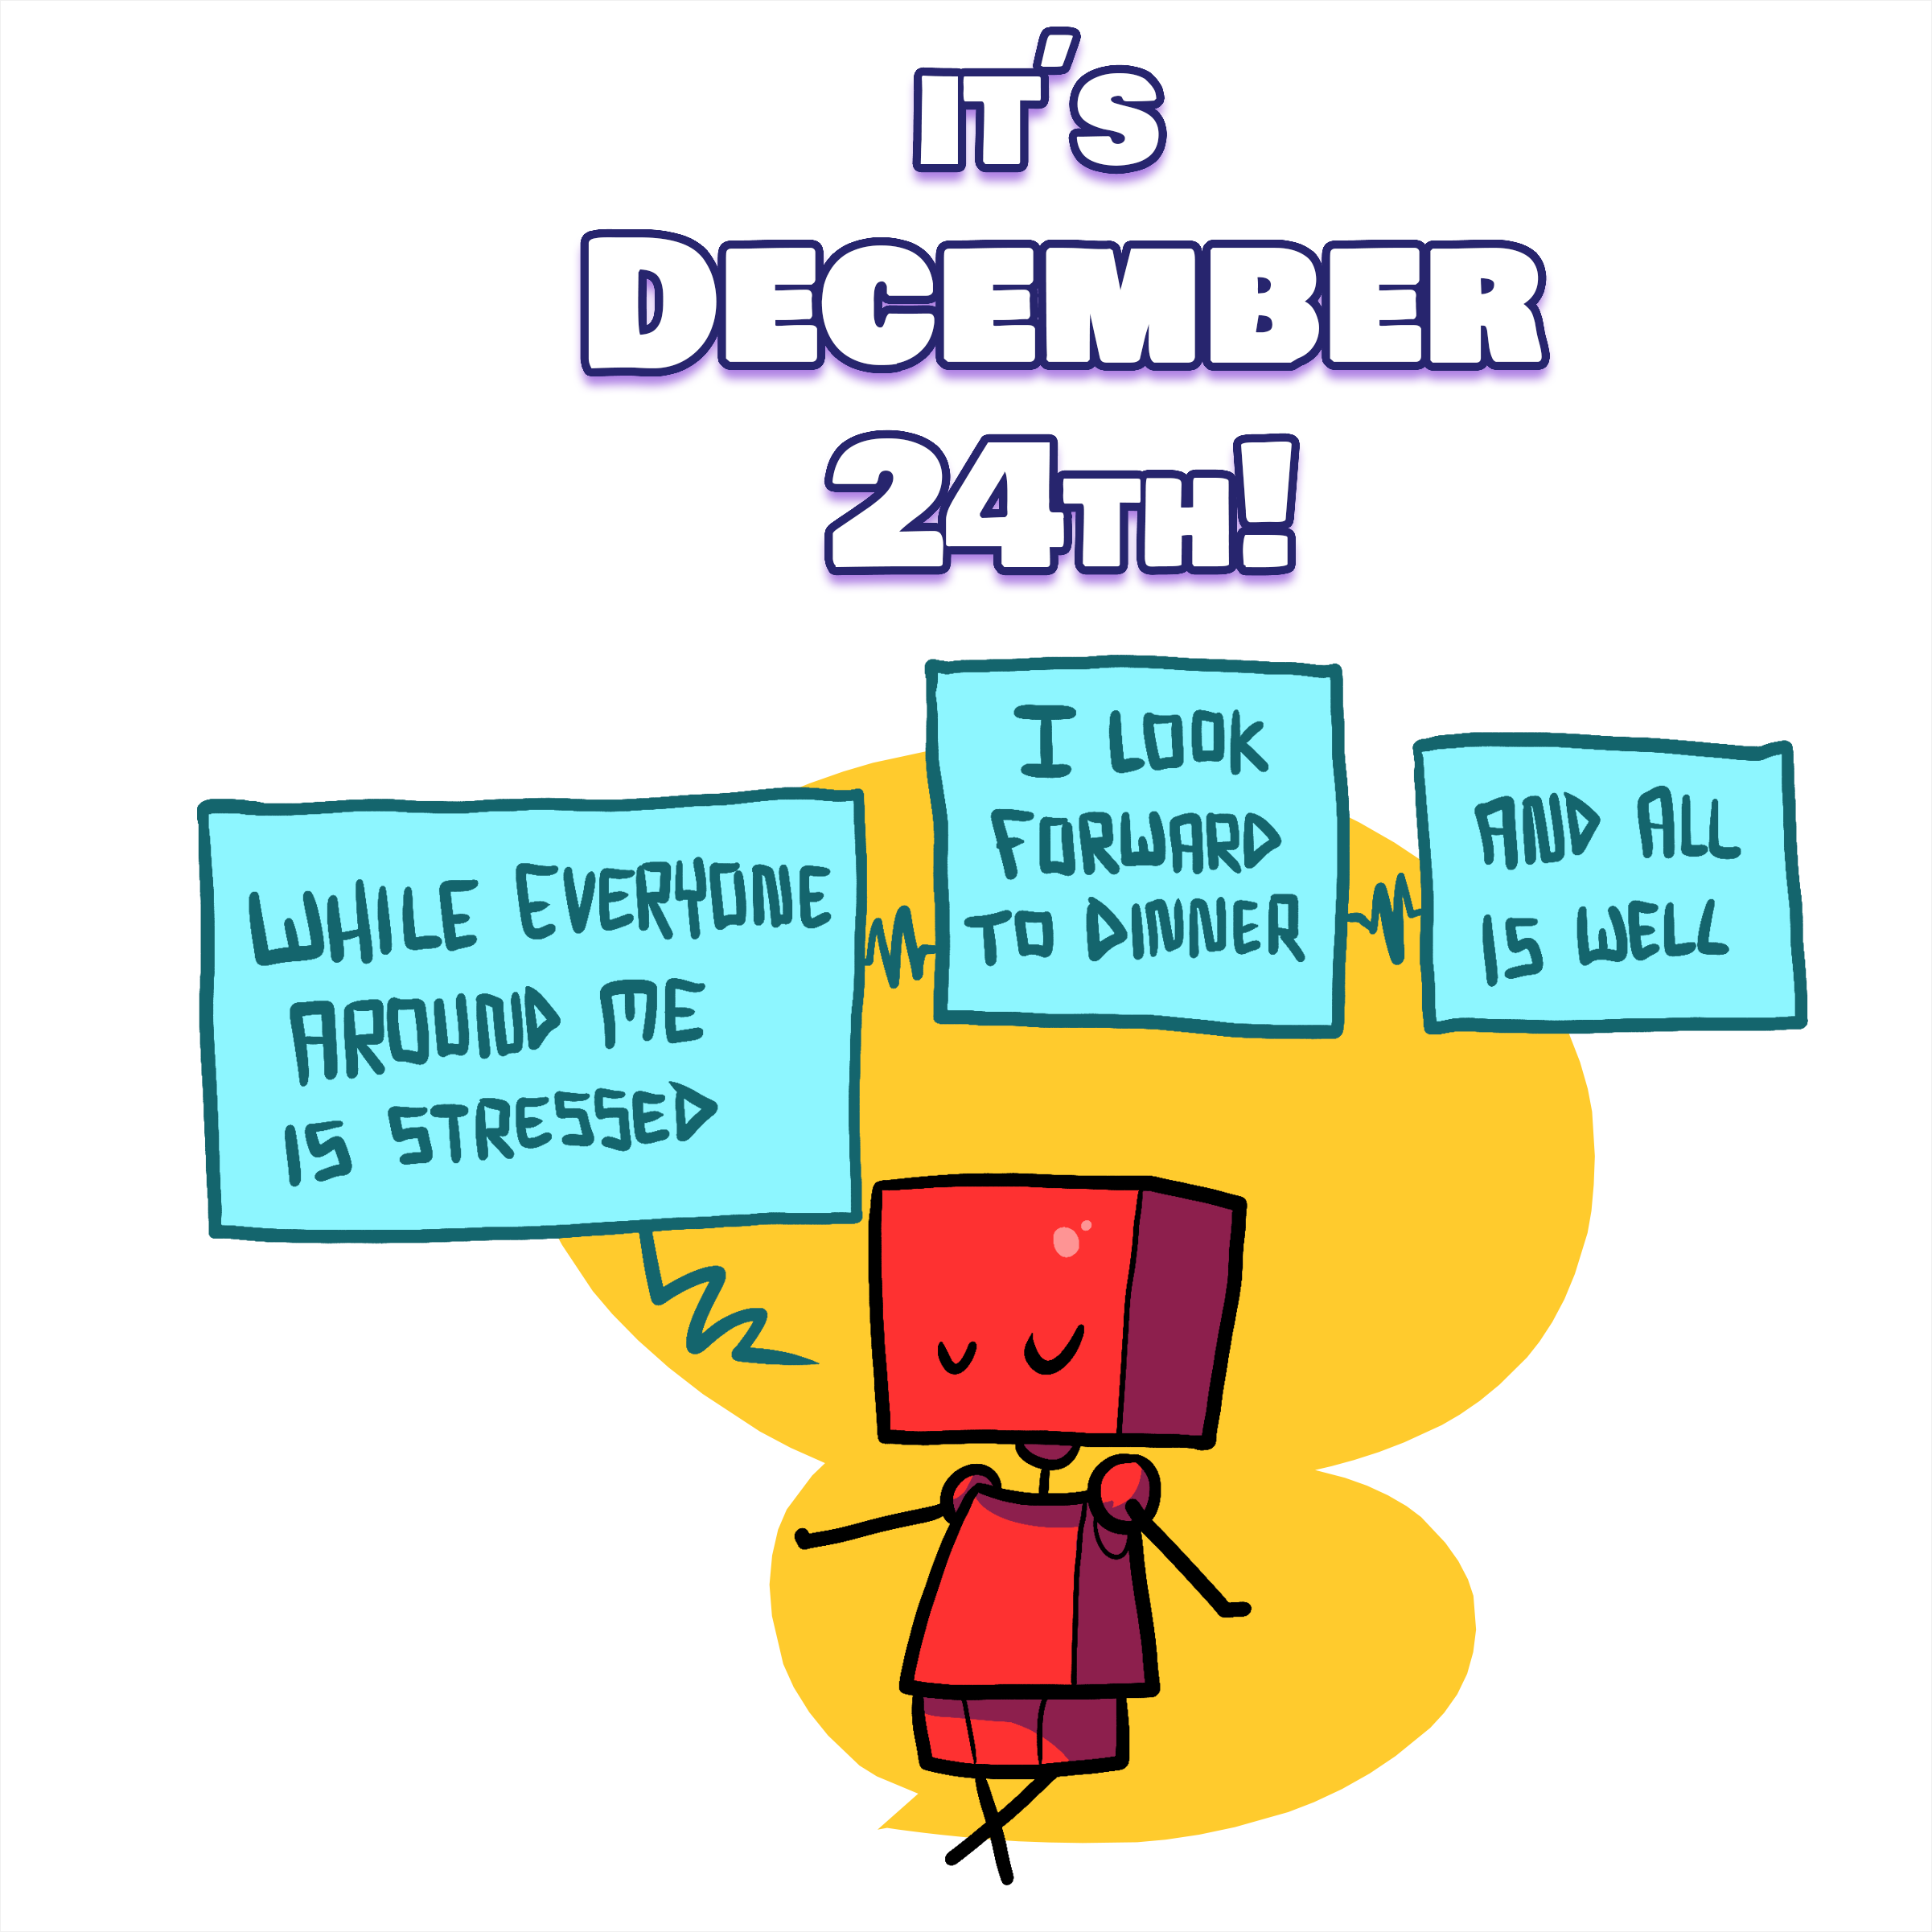 IT'S
DECEMBER
24TH!
WHILE EVERYONE
AROUND ME
IS STRESSED
I LOOK
FORWARD
TO DINNER
AND ALL
IS WELL